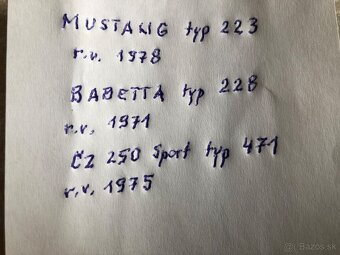 MUSTANG typ 223
r.v. 1978
BABETTA typ 228
r.v. 1971
ČZ 250 Sport typ 471
r.v. 1975
Bazos.sk